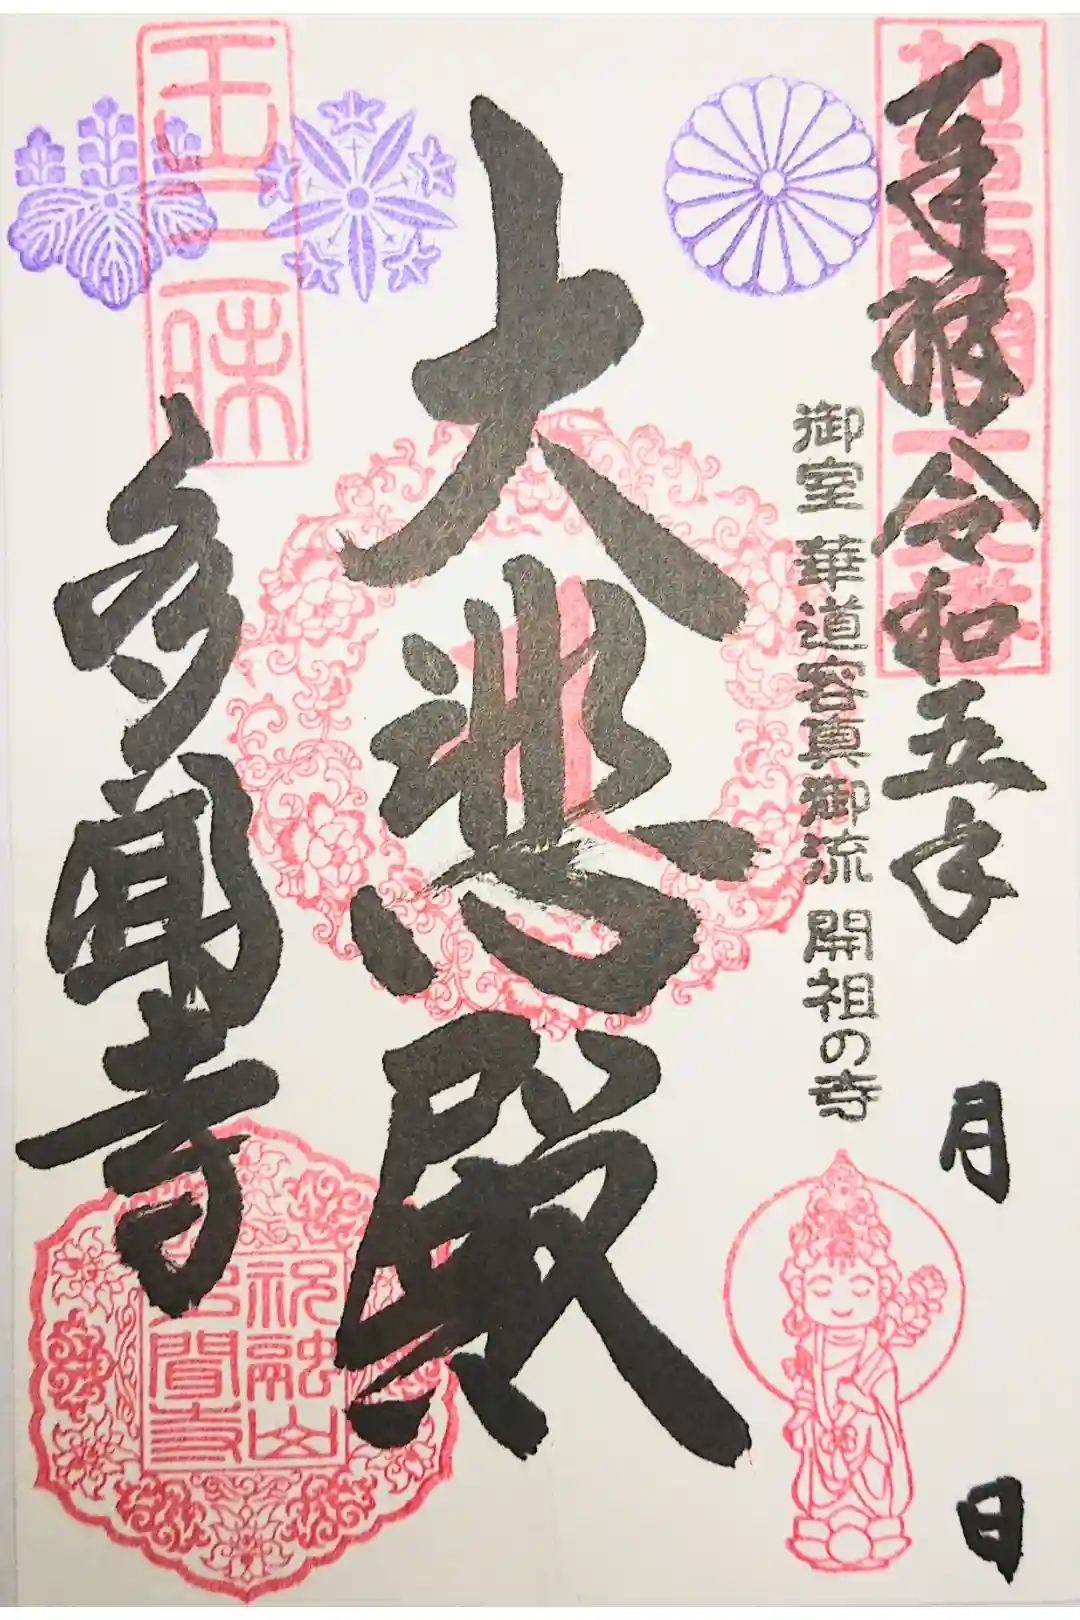 奉拝 令和五年 月 日
御室 華道容真御流 開祖の寺
大悲殿
多聞寺
祝融山
多聞寺